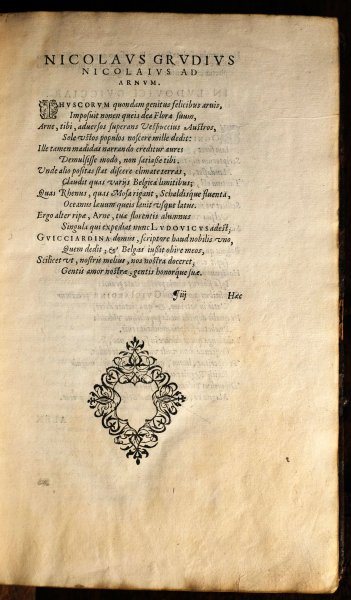 NICOLAVS GRVDIVS
NICOLAIVS AD
ARNVM.
THVSCORVM quondam genitus felicibus aruis,
Imposuit nomen queis dea Flora suum,
Arne, tibi, aduersos superans Vespuccius Austros,
Sole vstos populos noscere mille dedit:
Ille tamen madidas narrando creditur aures
Demulsisse modo, non satiasse tibi.
Vnde alio positas stat discere climate terras,
Claudit quas varijs Belgica limitibus;
Quas Rhenus, quas Mosa rigant, Schaldisque fluenta,
Oceanus læuum queis lauit vsque latus.
Ergo alter ripæ, Arne, tuæ florentis alumnus
Singula qui expediat nunc LVDOVICVS adest,
GVICCIARDINA domus, scriptore haud nobilis vno,
Quem dedit, & Belgas iußit obire meos,
Scilicet vt, nostris melius, nos nostra doceret,
Gentis amor nostræ, gentis honorque suæ.
¶iij Hæc